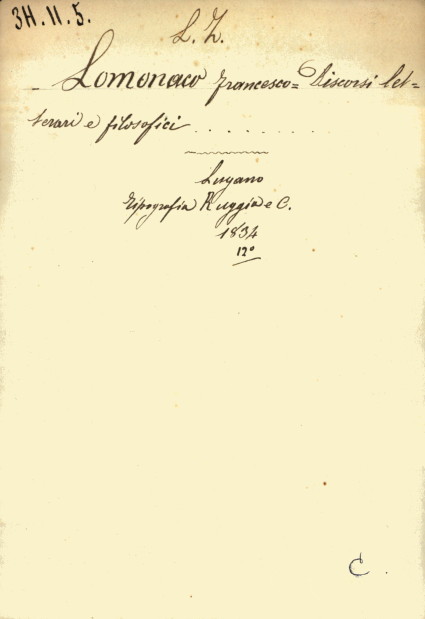 34. 11. 5.
L. Z.
Lomonaco Francesco = Discorsi let=
terari e filosofici . . . . . . . . . .
Lugano
Tipografia Ruggia e C.
1834
12º
C.